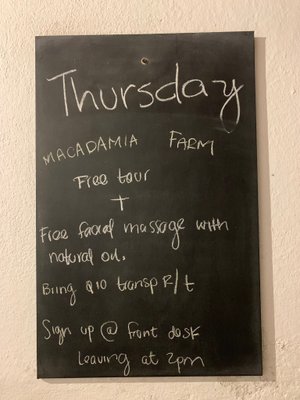 Thursday
MACADAMIA FARM
Free tour
+
Free facial massage with
natural oil.
Bring Q10 transp R/t
Sign up @ front desk
Leaving at 2pm